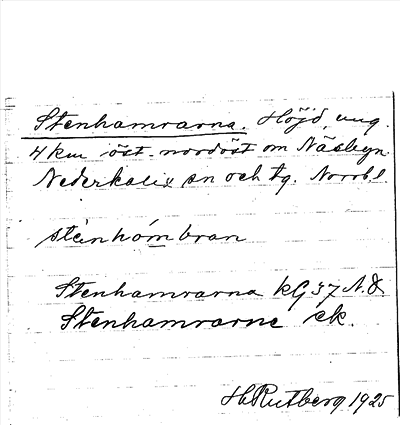 Stenhamrarna. Höjd, ung.
4 km öst-nordöst om Näsbyn
Nederkalix sn och tg. Norrb l.
steinhómbran
Stenhamrarna kG 37 N.Ö.
Stenhamrarne ek.
H. Rutberg 1925